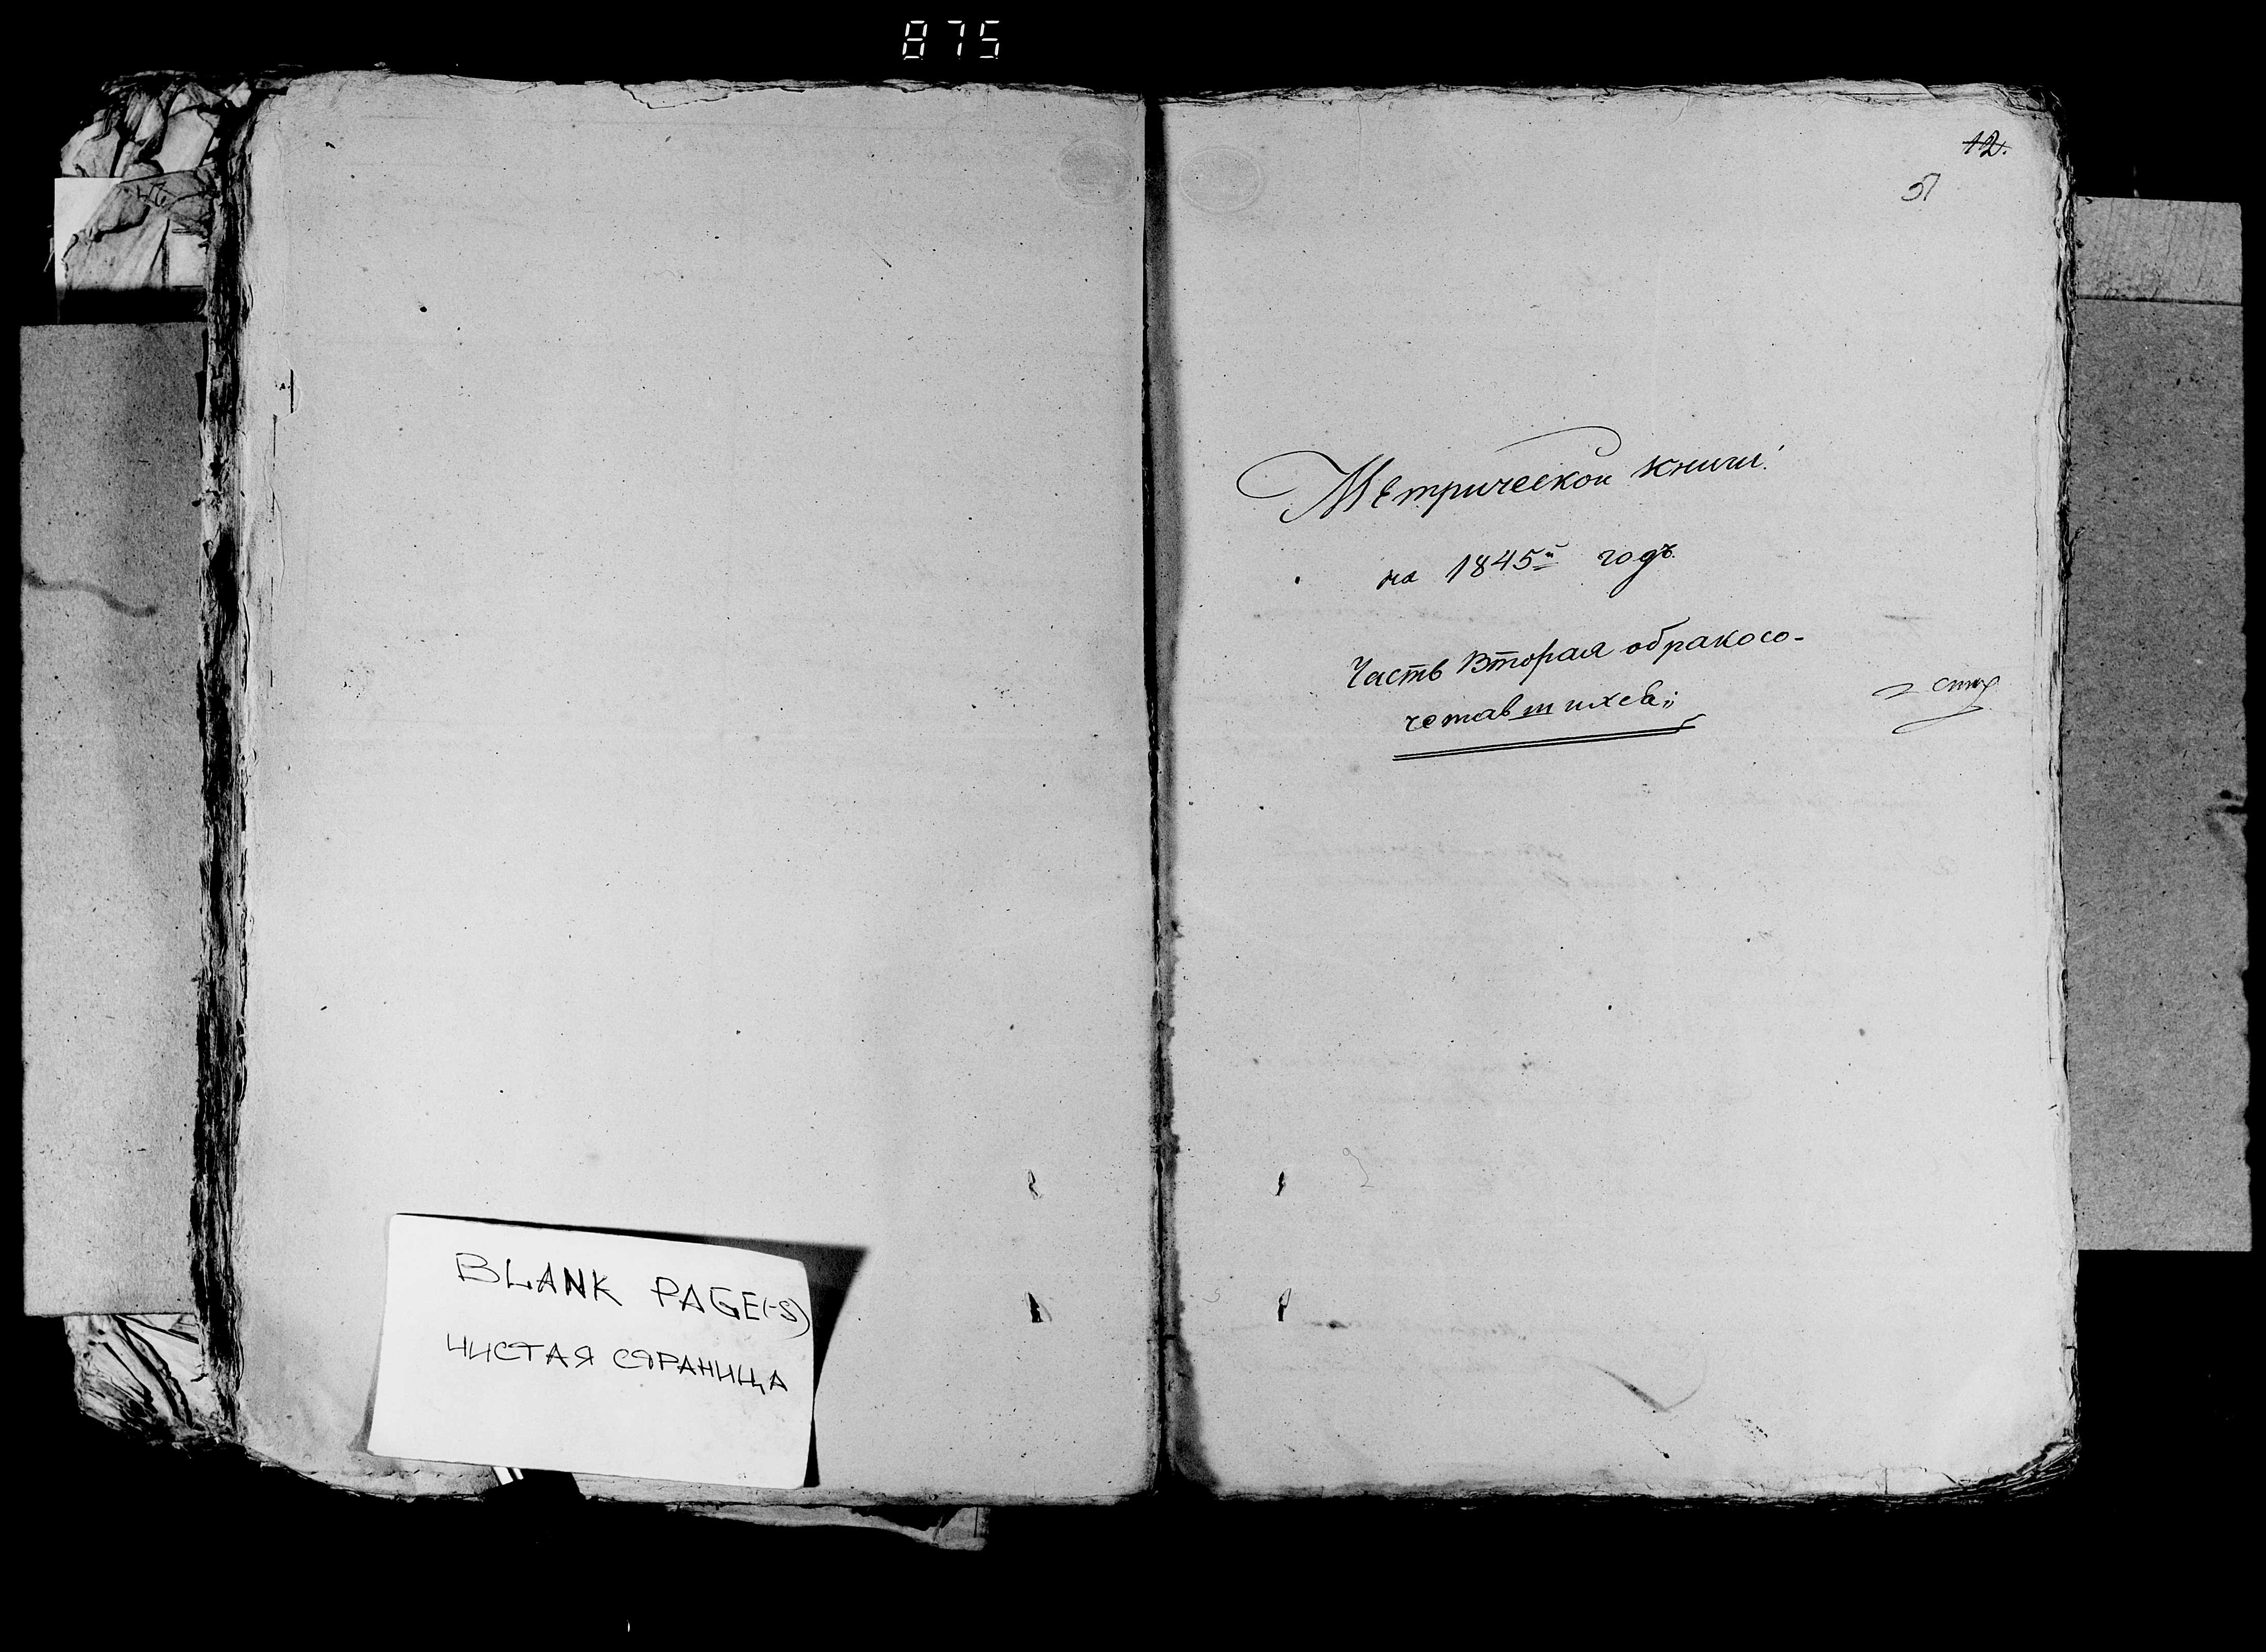 875
BLANK PAGE(-S)
ЧИСТАЯ СТРАНИЦА
12.
Метрической книги
на 1845й годъ.
Часть вторая обракосо-
четавшихся